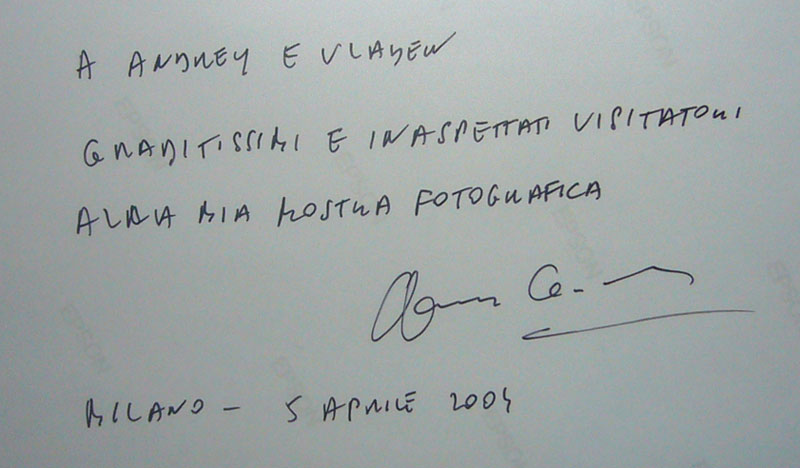 A ANDREY E VLADEN
GRADITISSIMI E INASPETTATI VISITATORI
ALLA MIA MOSTRA FOTOGRAFICA
MILANO - 5 APRILE 2004